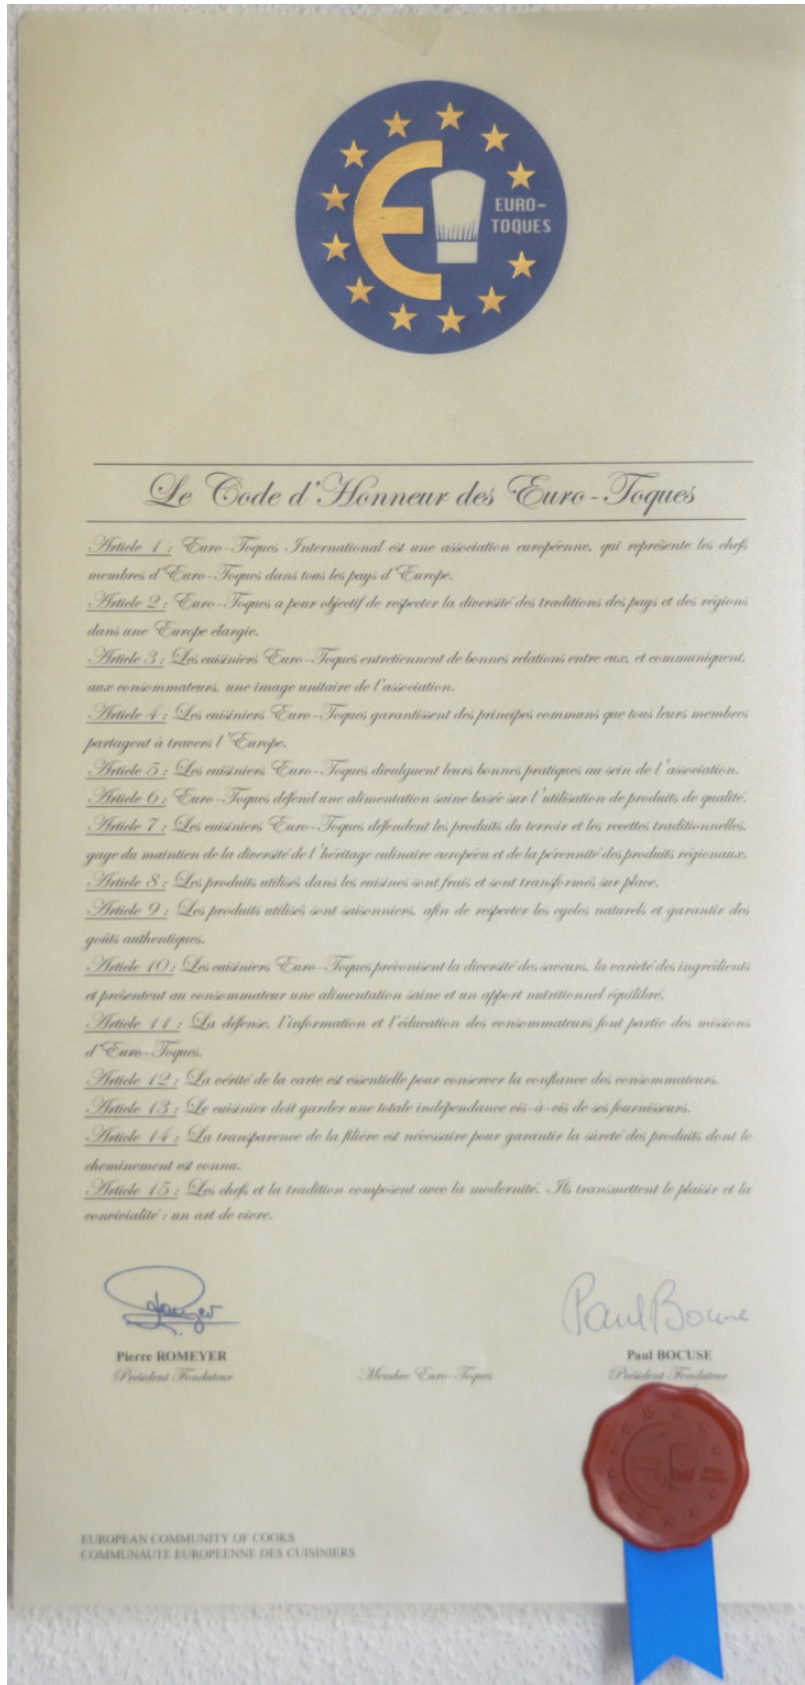 EURO-
TOQUES
Le Code d'Honneur des Euro-Toques
Article 1 : Euro-Toques International est une association européenne, qui représente les chefs
membres d'Euro-Toques dans tous les pays d'Europe.
Article 2 : Euro-Toques a pour objectif de respecter la diversité des traditions des pays et des régions
dans une Europe élargie.
Article 3 : Les cuisiniers Euro-Toques entretiennent de bonnes relations entre eux, et communiquent,
aux consommateurs, une image unitaire de l'association.
Article 4 : Les cuisiniers Euro-Toques garantissent des principes communs que tous leurs membres
partagent à travers l'Europe.
Article 5 : Les cuisiniers Euro-Toques divulguent leurs bonnes pratiques au sein de l'association.
Article 6 : Euro-Toques défend une alimentation saine basée sur l'utilisation de produits de qualité.
Article 7 : Les cuisiniers Euro-Toques défendent les produits du terroir et les recettes traditionnelles,
gage du maintien de la diversité de l'héritage culinaire européen et de la pérennité des produits régionaux.
Article 8 : Les produits utilisés dans les cuisines sont frais et sont transformés sur place.
Article 9 : Les produits utilisés sont saisonniers, afin de respecter les cycles naturels et garantir des
goûts authentiques.
Article 10 : Les cuisiniers Euro-Toques préconisent la diversité des saveurs, la variété des ingrédients
et présentent au consommateur une alimentation saine et un apport nutritionnel équilibré.
Article 11 : La défense, l'information et l'éducation des consommateurs font partie des missions
d'Euro-Toques.
Article 12 : La vérité de la carte est essentielle pour conserver la confiance des consommateurs.
Article 13 : Le cuisinier doit garder une totale indépendance vis-à-vis de ses fournisseurs.
Article 14 : La transparence de la filière est nécessaire pour garantir la sûreté des produits dont le
cheminement est connu.
Article 15 : Les chefs et la tradition composent avec la modernité. Ils transmettent le plaisir et la
convivialité : un art de vivre.
Paul Bocuse
Pierre ROMEYER
Président Fondateur
Membre Euro-Toques
Paul BOCUSE
Président Fondateur
EURO-
TOQUES
EUROPEAN COMMUNITY OF COOKS
COMMUNAUTE EUROPEENNE DES CUISINIERS